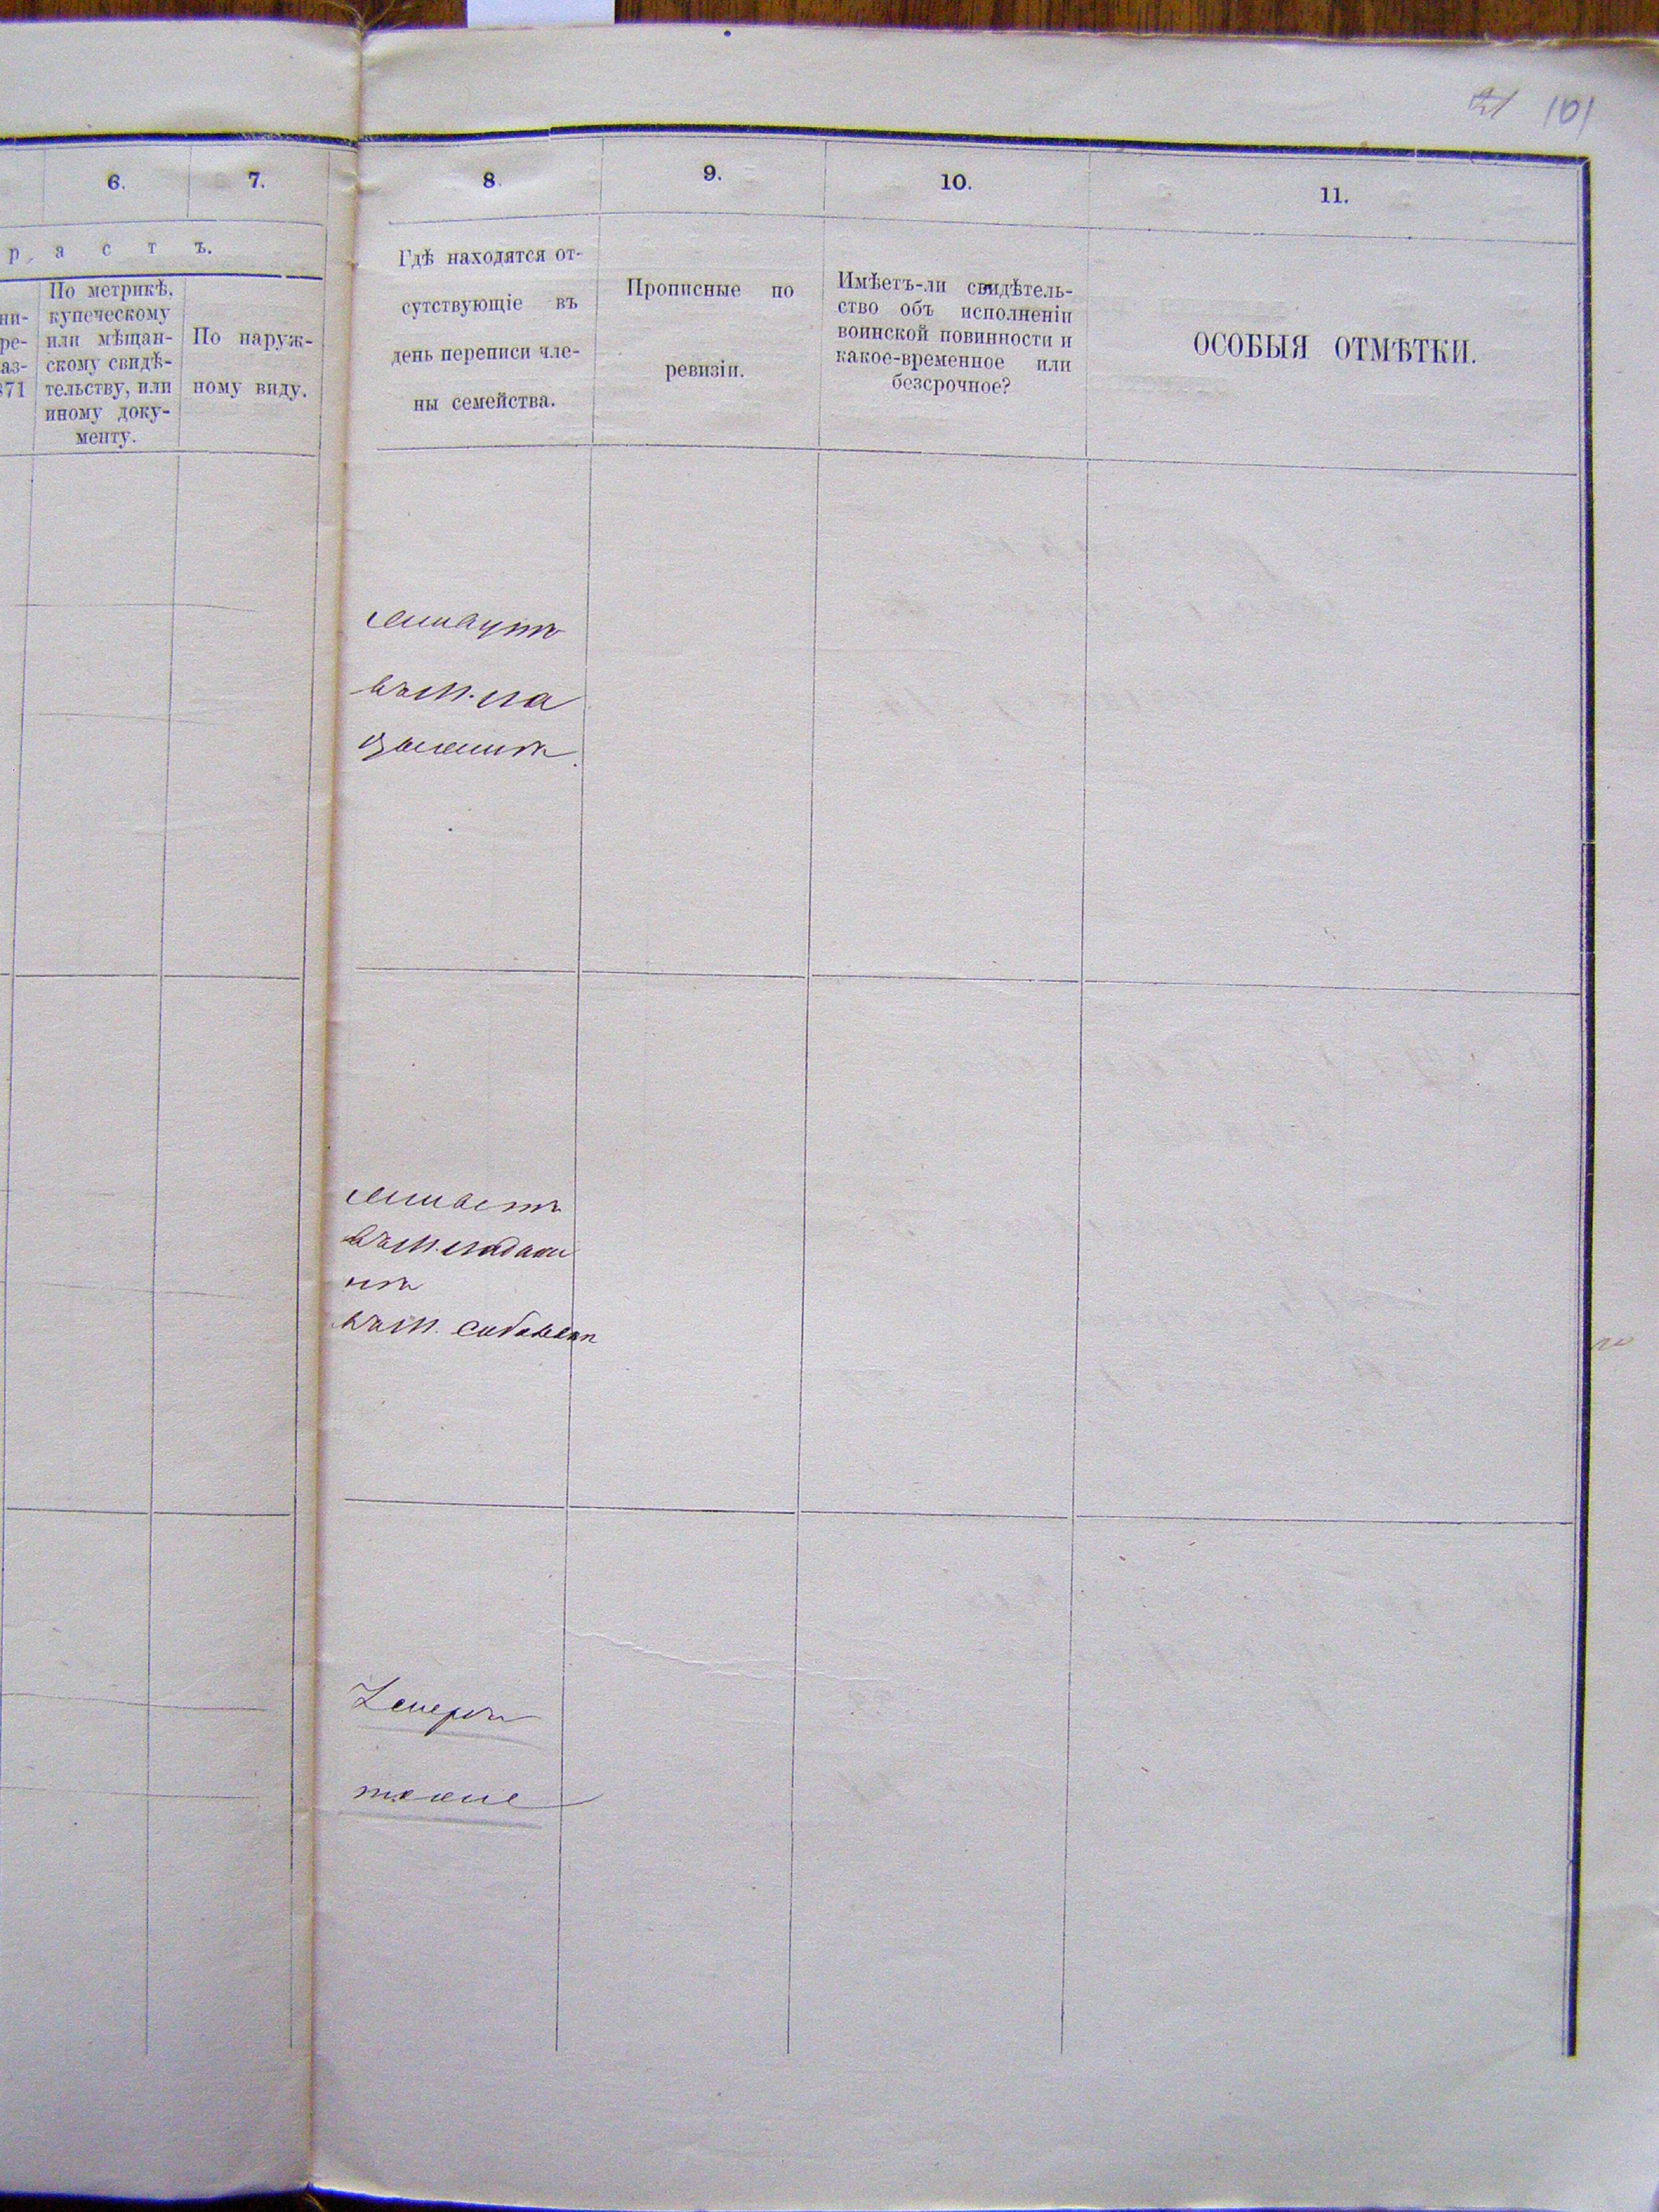 101
6.
7.
8.
9.
10.
11.
р а с т ъ.
ни-
ре-
аз-
871
По метрикѣ,
купеческому
или мѣщан-
скому свидѣ-
тельству, или
иному доку-
менту.
По наруж-
ному виду.
Гдѣ находятся от-
сутствующіе въ
день переписи чле-
ны семейства.
Прописные по
ревизіи.
Имѣетъ-ли свидѣтель-
ство объ исполненіи
воинской повинности и
какое-временное или
безсрочное?
ОСОБЫЯ ОТМѢТКИ.
живутъ
въ м.
живетъ
въ м.
въ м.